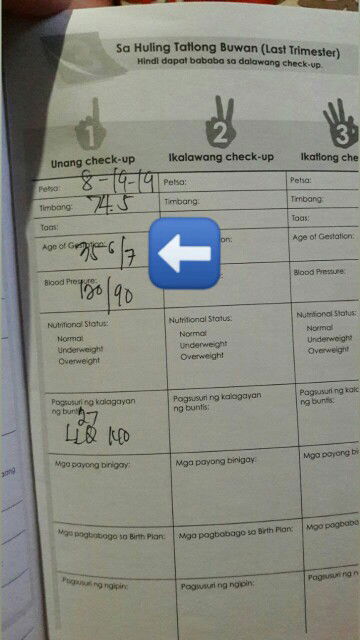 Sa Huling Tatlong Buwan (Last Trimester)
Hindi dapat bababa sa dalawang check-up.
1 2 3
Unang check-up Ikalawang check-up Ikatlong che
Petsa: 8-19-19 Petsa: Petsa:
Timbang: 74.5 Timbang: Timbang:
Taas: Taas:
Age of Gestation: 35 6/7 on: Age of Gestation:
Blood Pressure: 120/90 Blood Pressure:
Nutritional Status: Nutritional Status: Nutritional Status:
Normal Normal Normal
Underweight Underweight Underweight
Overweight Overweight Overweight
Pagsusuri ng kalagayan Pagsusuri ng kalagayan Pagsusuri ng kalc
ng buntis: ng buntis: ng buntis:
27
140
Mga payong binigay: Mga payong binigay: Mga payong bi
Mga pagbabago sa Birth Plan: Mga pagbabago sa Birth Plan: Mga pagbabag
Pagsusuri ng ngipin: Pagsusuri ng ngipin: Pagsusuri ng n